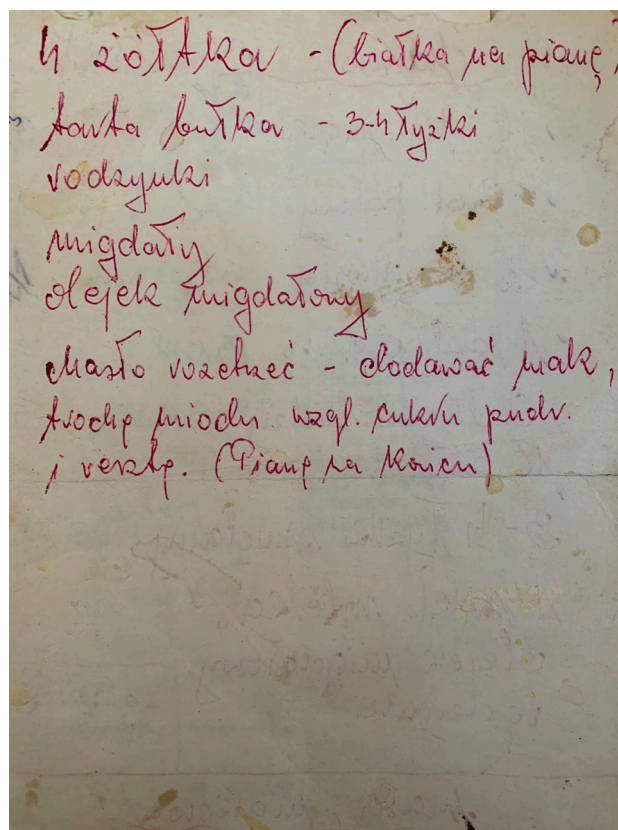 4 żółtka - (białka na pianę)
tarta bułka - 3-4 łyżki
rodzynki
migdały
olejek migdałowy
Masło rozetrzeć - dodawać mak,
trochę miodu wzgl. cukru pudr.
i resztę. (Pianę na końcu)